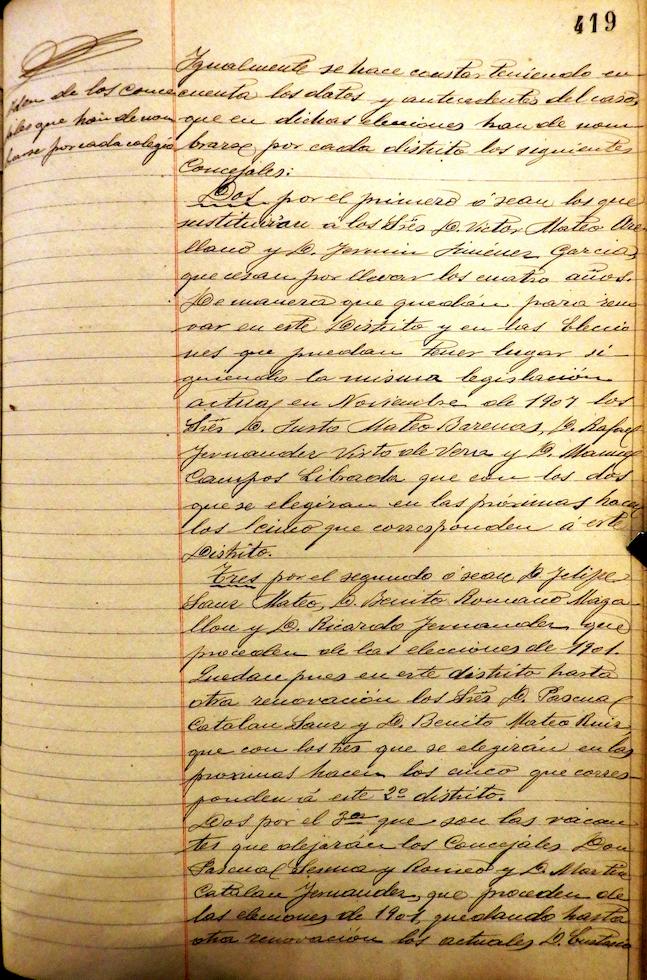 419
Idem de los conce
jales que han de nom
brarse por cada colegio
Igualmente se hace constar teniendo en
cuenta los datos y antecedentes del caso,
que en dichas elecciones han de nom-
brarse por cada distrito los siguientes
Concejales:
Dos por el primero ó sean los que
sustituirán á los Srēs D. Victor Mateo Are-
llano y D. Fermin Jiménez Garcia,
que cesan por llevar los cuatro años.
De manera que quedan para reno
var en este Distrito y en las Eleccio
nes que puedan tener lugar si-
guiendo la misma legislación
actual en Noviembre de 1907 los
Srēs D. Justo Mateo Barenas, D. Rafael
Fernandez Visto de Vera y D. Manuel
Campos Librada que con los dos
que se elegiran en las próximas hacen
los cinco que corresponden á este
Distrito.
Tres por el segundo ó sean D. Felipe
Sanz Mateo, D. Benito Romano Maga-
llon y D. Ricardo Fernandez que
proceden de las elecciones de 1901.
Quedan pues en este distrito hasta
otra renovación los Srēs D. Pascual
Catalan Sanz y D. Benito Mateo Ruiz
que con los tres que se elegirán en las
proximas hacen los cinco que corres-
ponden á este 2º distrito.
Dos por el 3er que son las vacan
tes que dejarán los Concejáles Don
Pascual y Romeo y D. Martin
Catalan Fernandez, que proceden de
las elecciones de 1901, quedando hasta
otra renovación los actuales D. Eustasio